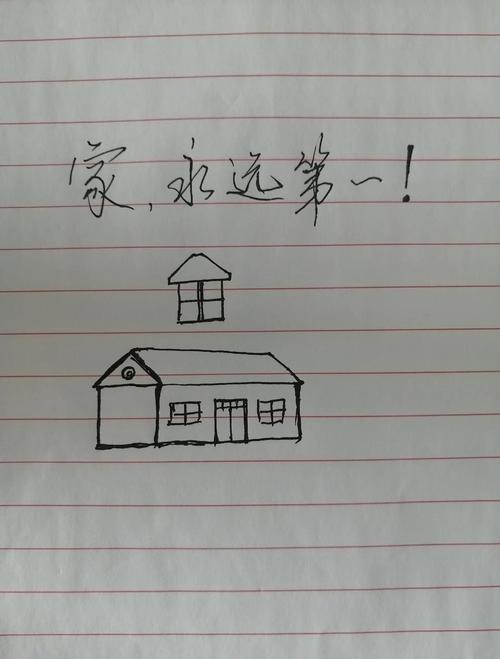 家,永远第一!